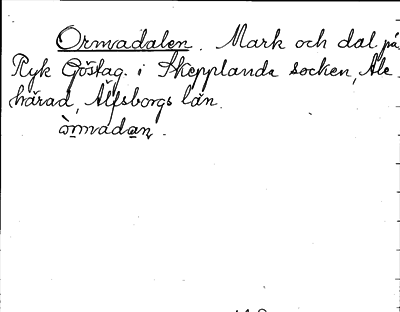 Ormadalen. Mark och dal på
Ryk Göstag. i Skepplanda socken, Ale
härad, Älfsborgs län.
òrmadan.